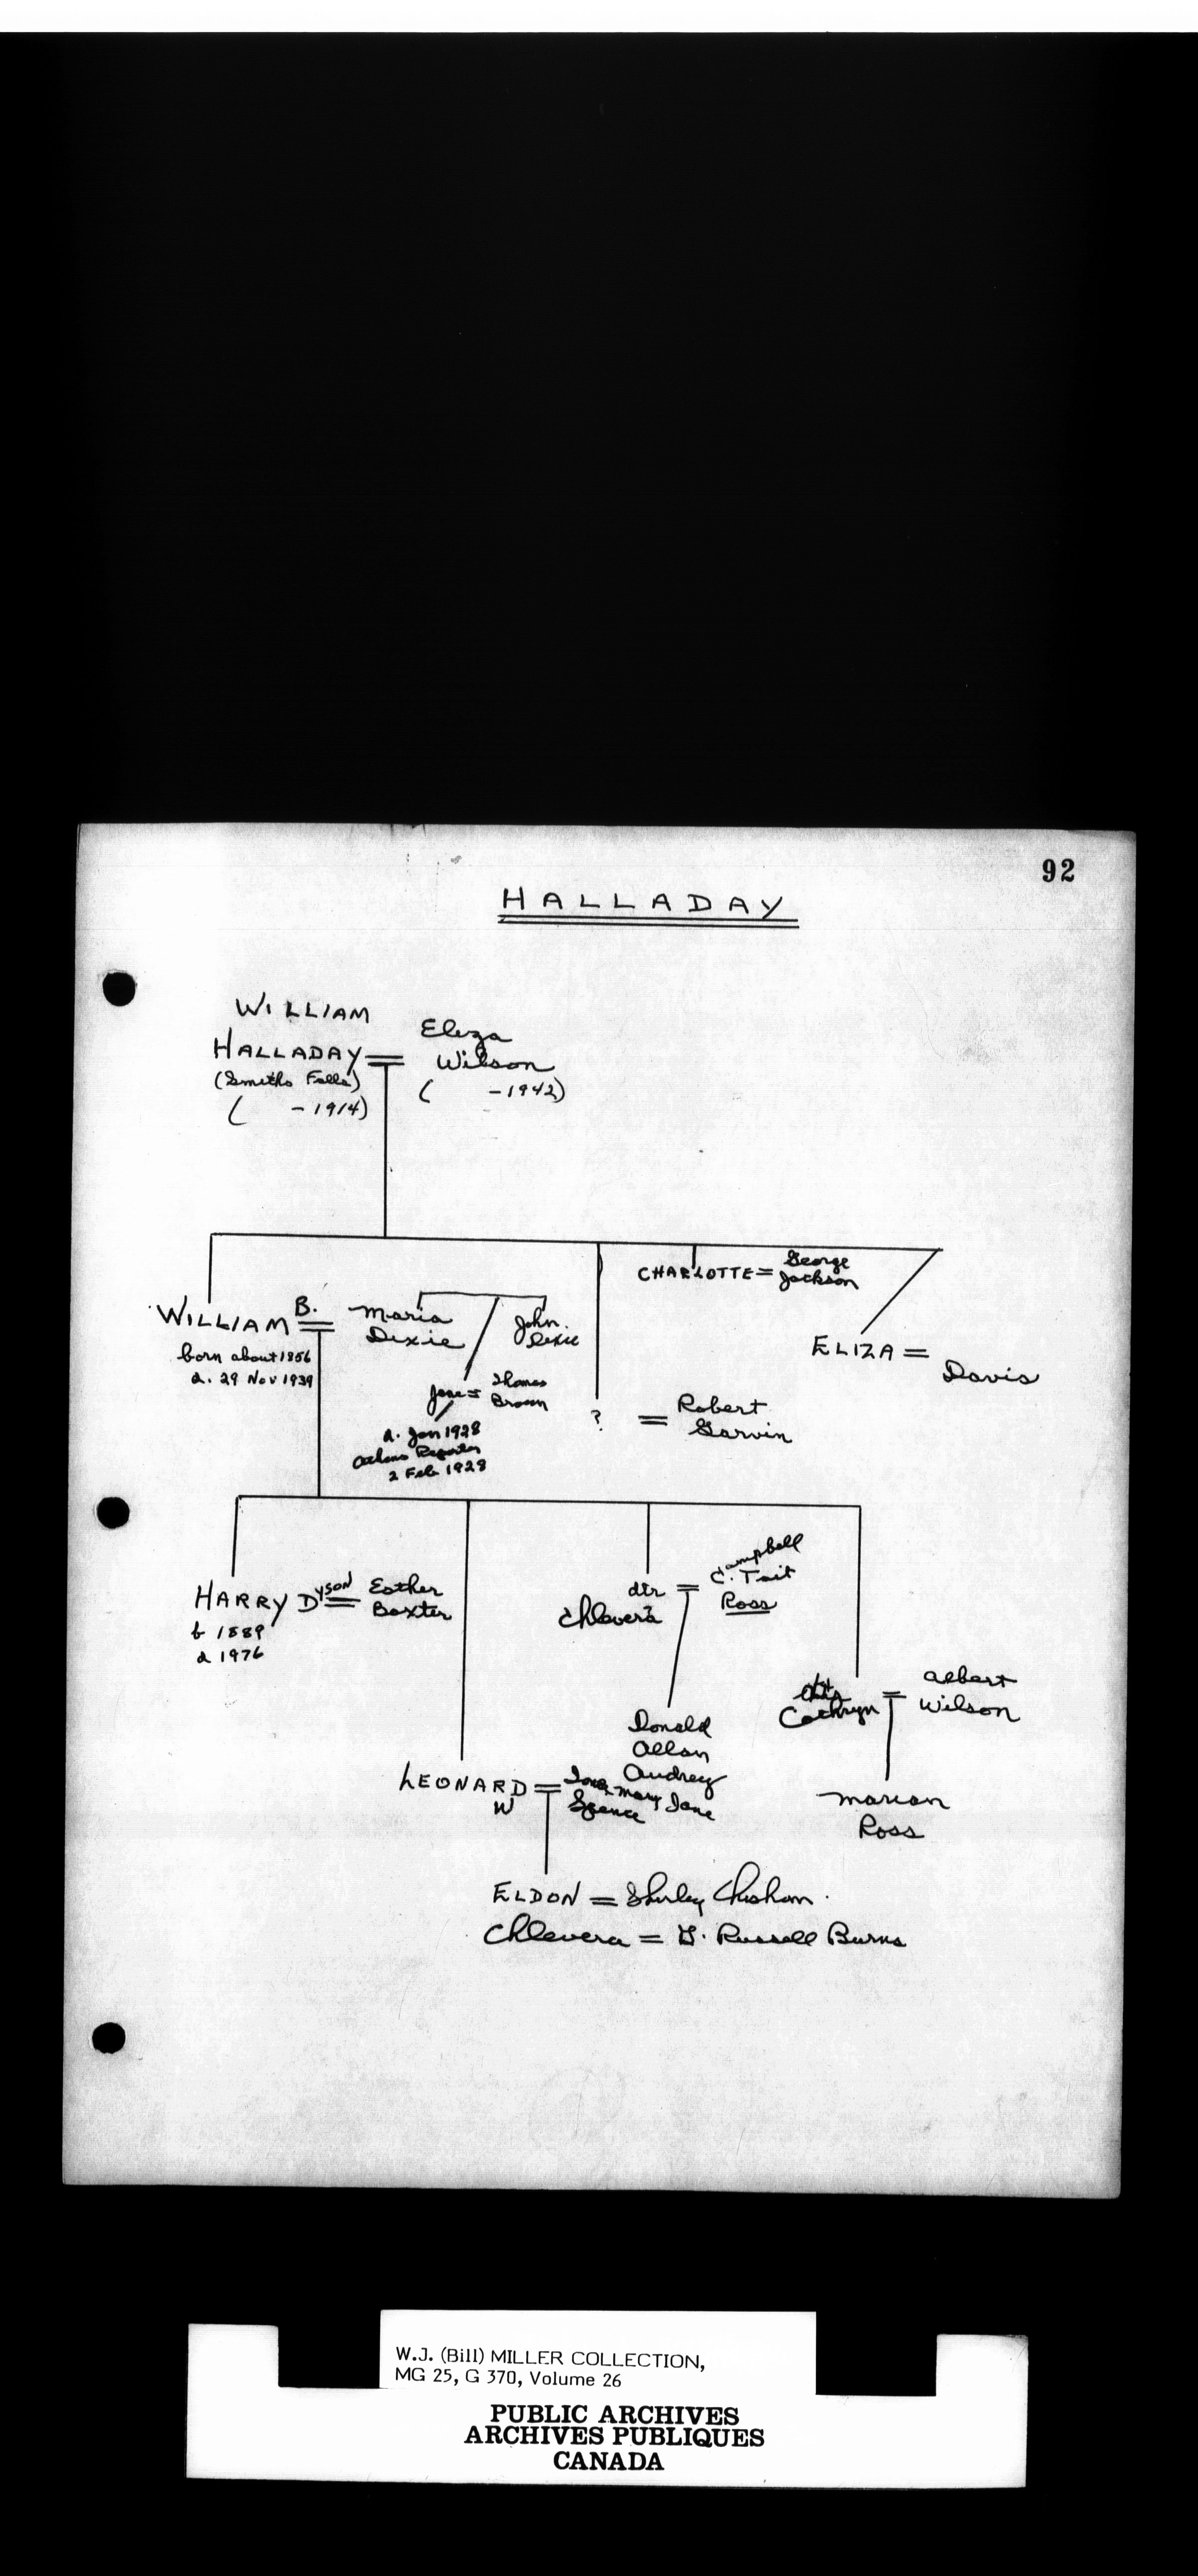 92
HALLADAY
WILLIAM
HALLADAY =
(Smiths Falls)
( - 1914)
Eliza
Wilson
( - 1942)
CHARLOTTE = George
Jackson
WILLIAM B. =
born about 1856
d. 29 Nov 1939
Maria
Dixie
John
Dixie
Jane = Thomas
Brown
d. Jan 1928
Athens Reporter
2 Feb 1928
? = Robert
Garvin
ELIZA =
Davis
HARRY DYSON =
b 1889
d 1976
Esther
Baxter
dtr =
Chlevera
Campbell
C. Tait
Ross
Cathryn =
Albert
Wilson
Donald
Allan
Audrey
Mary Jane
LEONARD =
W
Spence
Marion
Ross
ELDON = Shirley Chisham
Chlevera = G. Russell Burns
W.J. (Bill) MILLER COLLECTION,
MG 25, G 370, Volume 26
PUBLIC ARCHIVES
ARCHIVES PUBLIQUES
CANADA